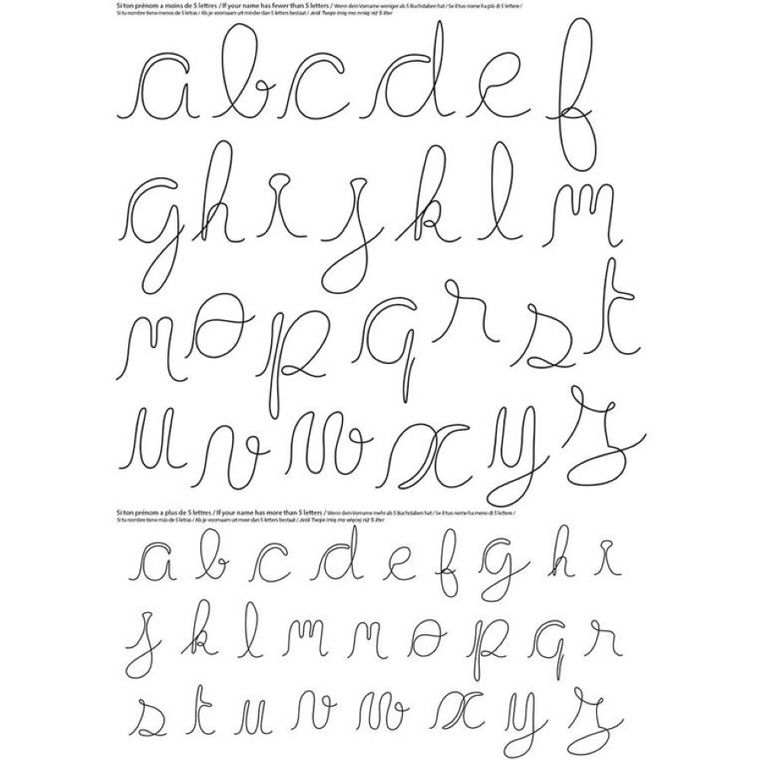 Si ton prénom a moins de 5 lettres / If your name has fewer than 5 letters / Wenn dein Vorname weniger als 5 Buchstaben hat / Se il tuo nome ha più di 5 lettere /
Si tu nombre tiene menos de 5 letras / Als je voornaam uit minder dan 5 letters bestaat / Jeśli Twoje imię ma mniej niż 5 liter
a b c d e f
g h i j k l m
n o p q r s t
u v w x y z
Si ton prénom a plus de 5 lettres / If your name has more than 5 letters / Wenn dein Vorname mehr als 5 Buchstaben hat / Se il tuo nome ha meno di 5 lettere /
Si tu nombre tiene más de 5 letras / Als je voornaam uit meer dan 5 letters bestaat / Jeśli Twoje imię ma więcej niż 5 liter
a b c d e f g h i
j k l m n o p q r
s t u v w x y z